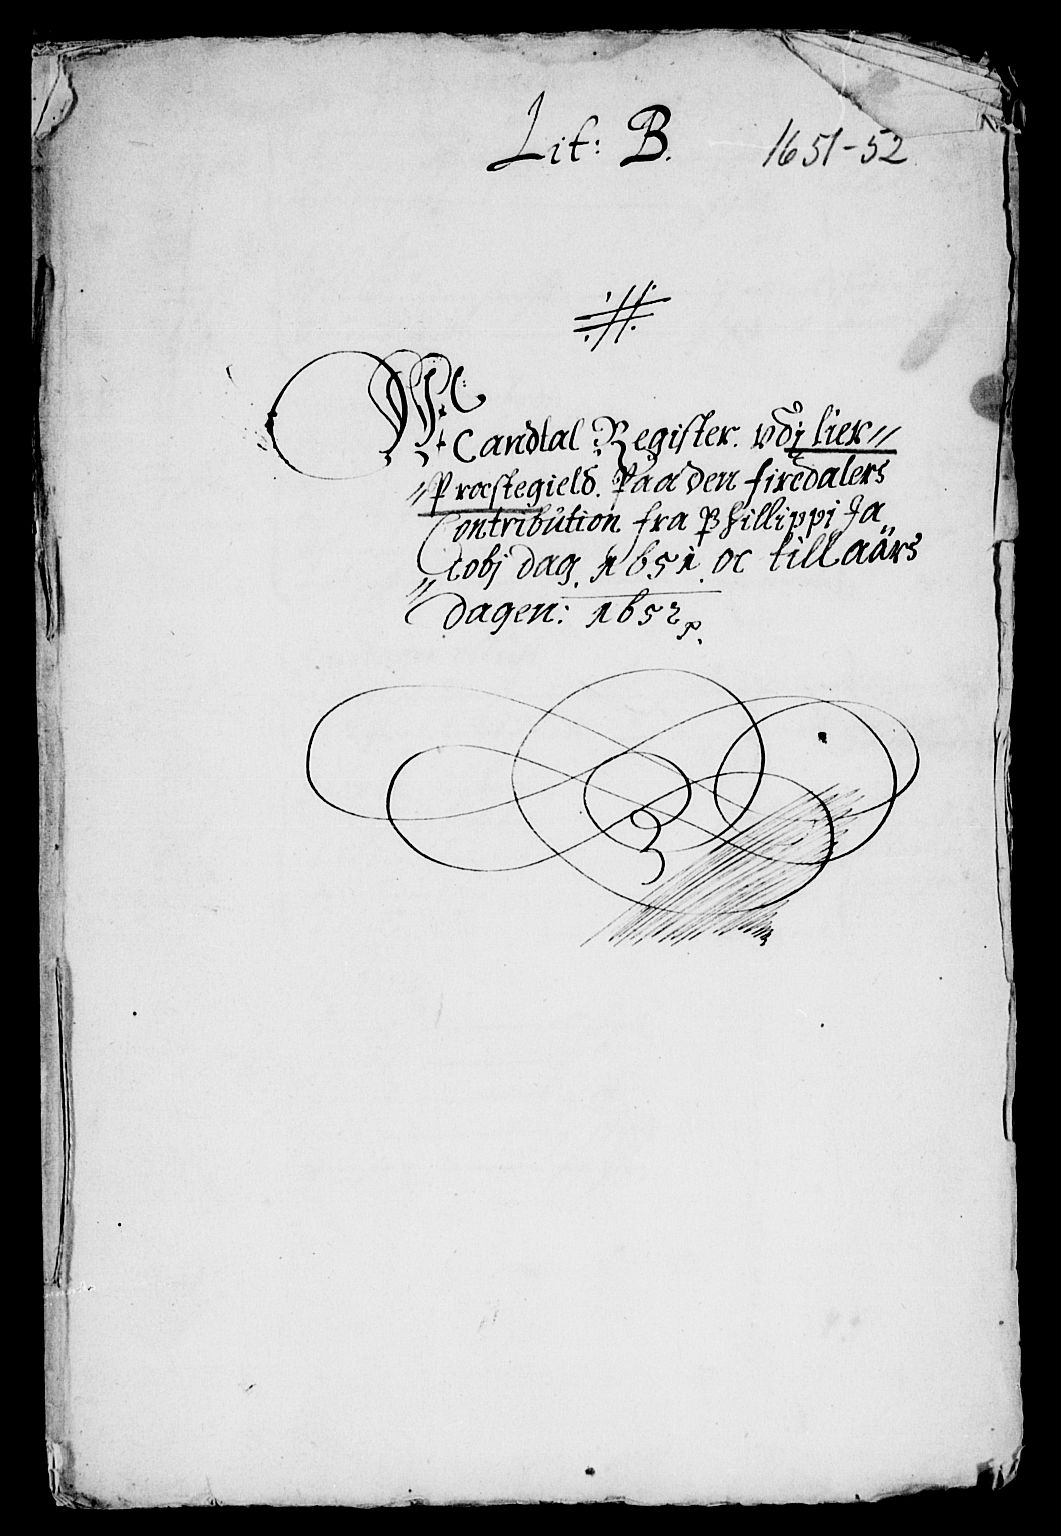 Lit: B. 1651-52
Mandtal Register. vdj Lier
Præstegield. Paa den firedalers
Contribution fra Phillippi Ja
cobj dag. 1651. oc till aars
dagen: 1652